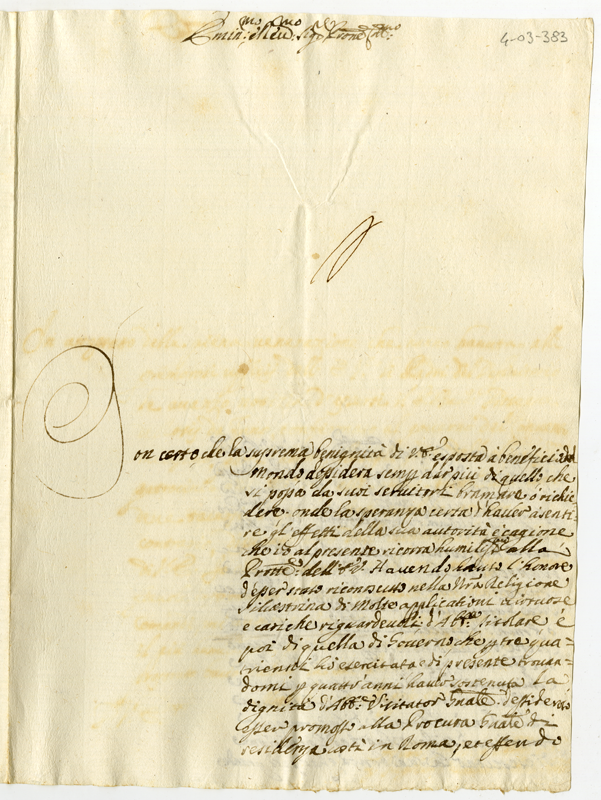 Emin:mo e Reu:mo Sig.r Prone Col:mo
4-03-383
Son certo, che la suprema benignità di V.E. esposta à beneficio del
mondo desidera sempre dar più di quello che
si possa da suoi servitori bramare ò richie
dere. onde la speranza certa d'hauer à senti-
re gl'effetti della sua autorità è cagione
che io al presente ricorra humilm.te alla
Prott.e dell'E.V. Hauendo hauto l'honore
d'esser stato riconosciuto nella Nra Religione
Siluestrina di molte applicationi uirtuose
e cariche riguardeuoli: d'Abb.e titolare e
poi di quella di Gouerno che p tre qua-
rienni hò esercitata e di presente trouan-
domi p quattr'anni hauer sostenuta la
dignità d'Abb.e Visitator Gnale. desidero
esser promosso alla Procura Gnale di
residenza costì in Roma, et essendo